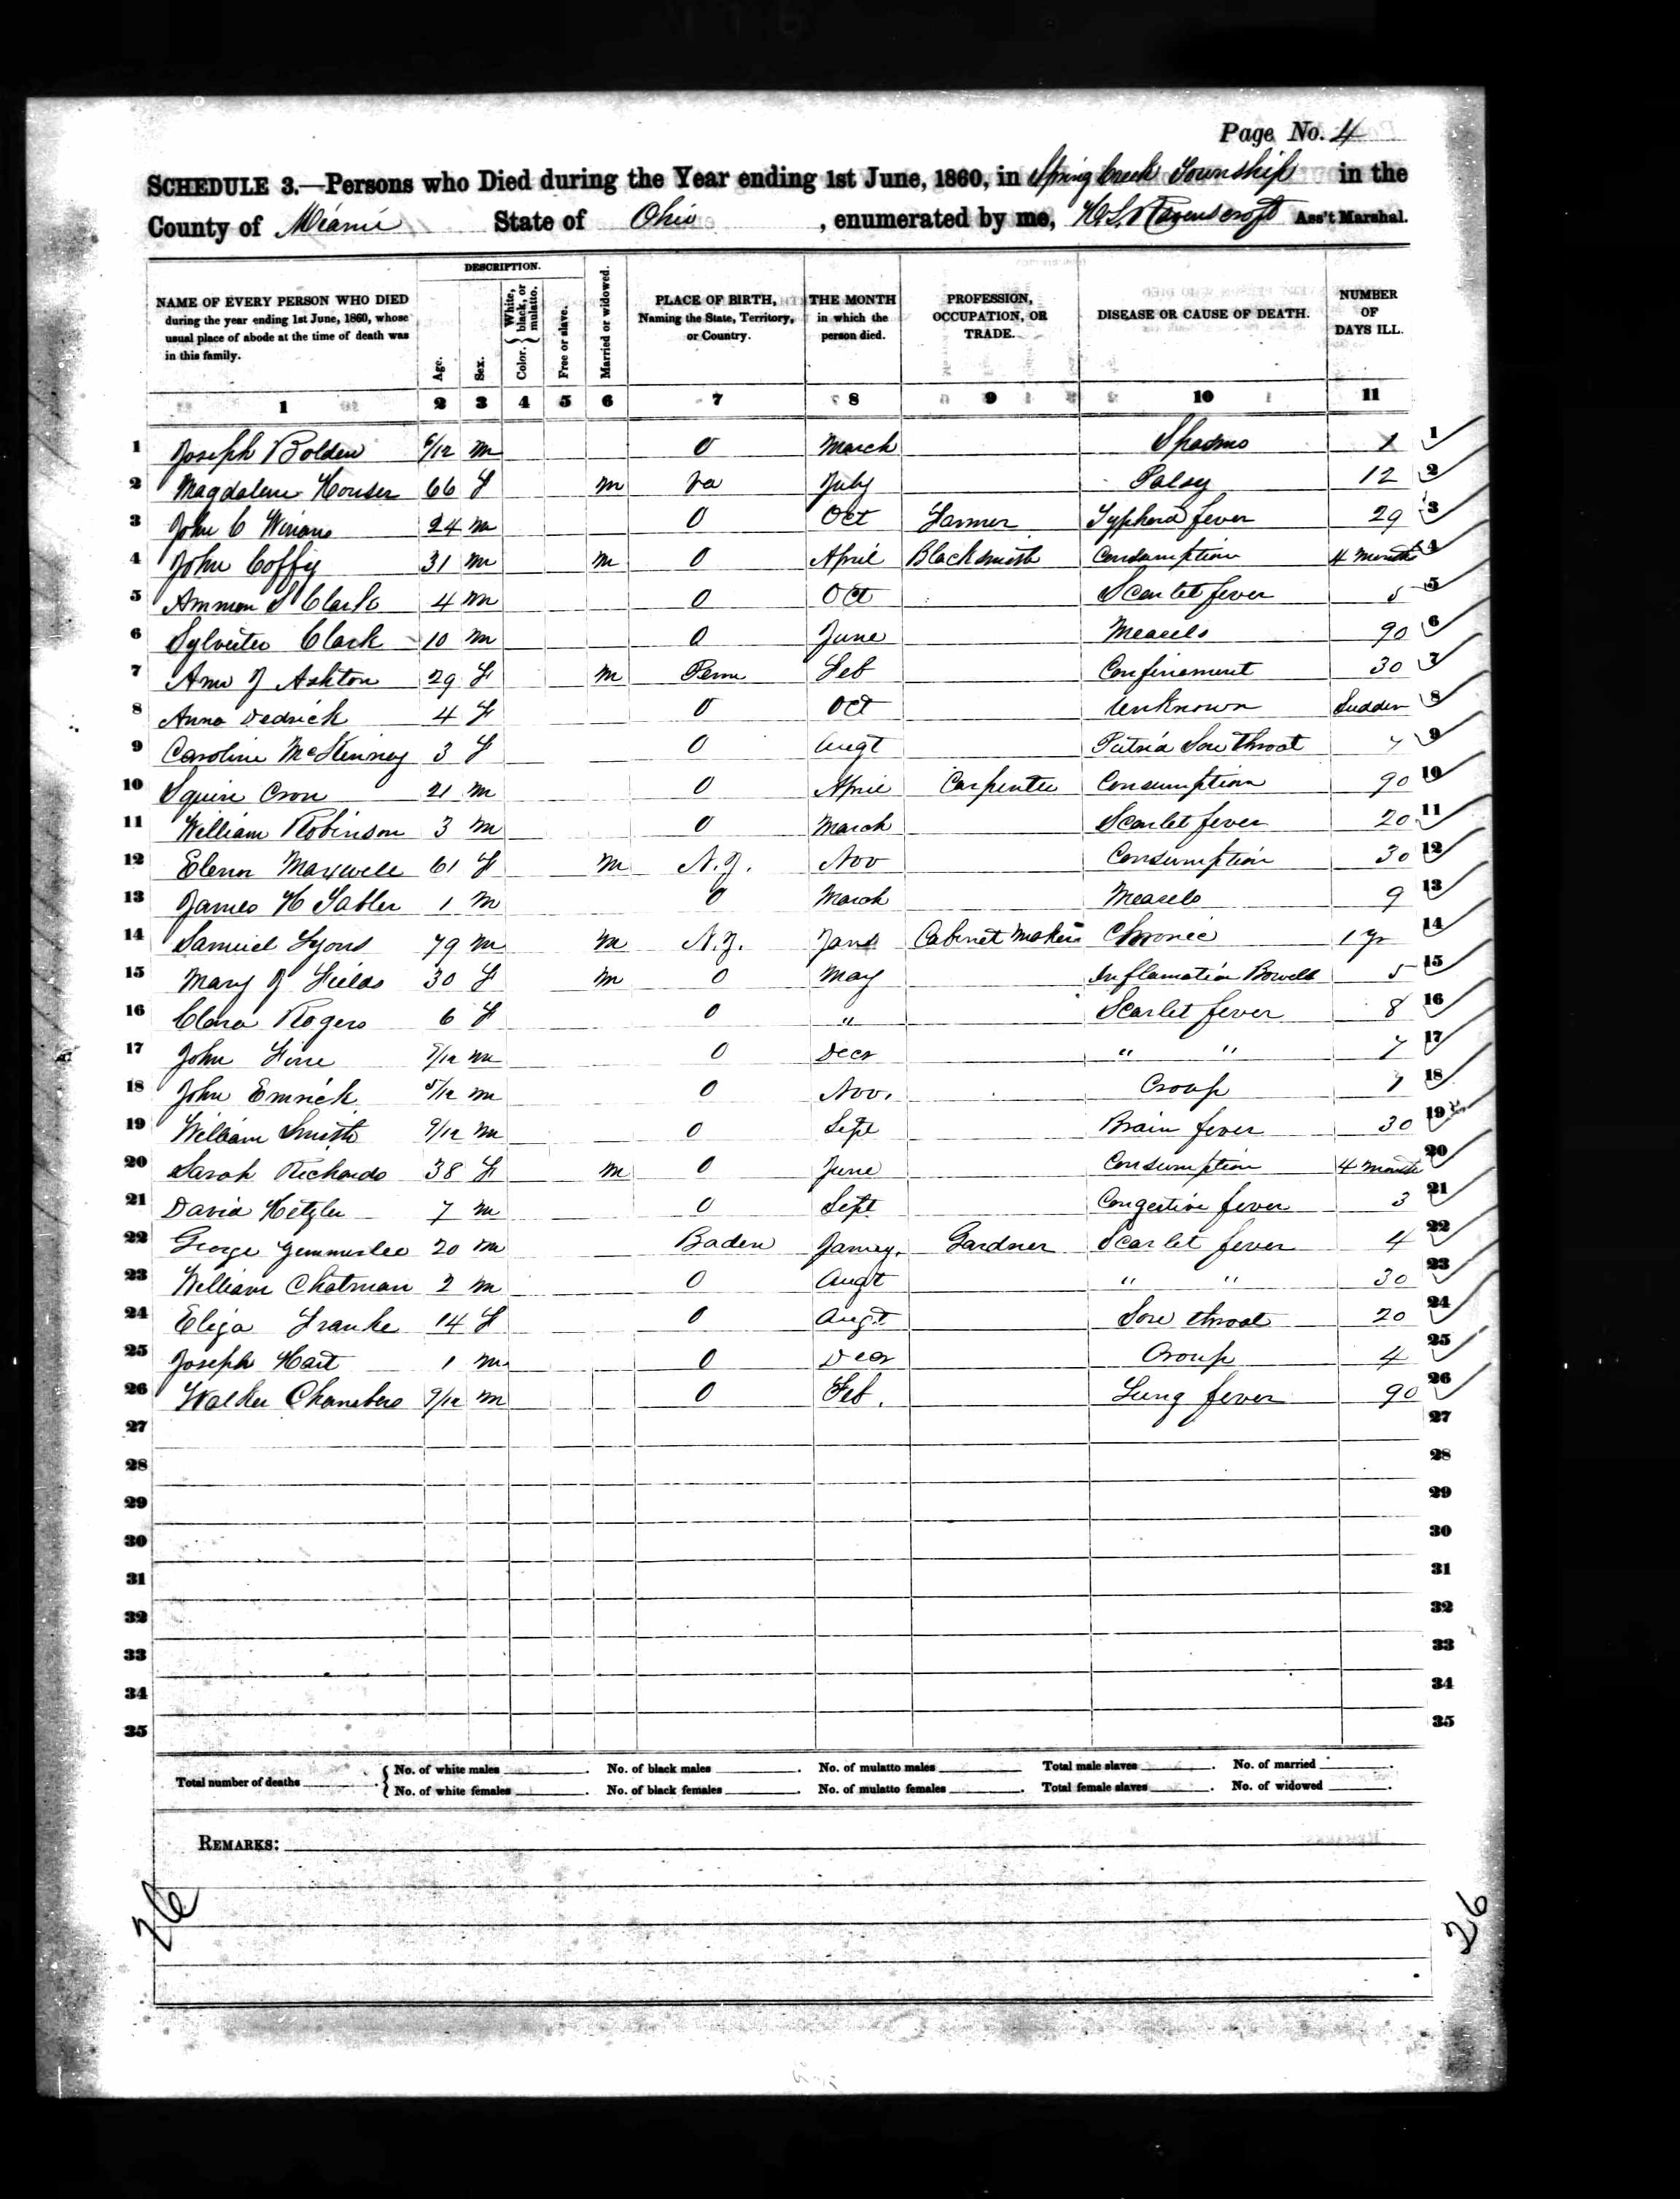 Page No. 4
SCHEDULE 3.—Persons who Died during the Year ending 1st June, 1860, in Spring Creek Township in the
County of Miami State of Ohio, enumerated by me, Ravenscroft Ass't Marshal.
NAME OF EVERY PERSON WHO DIED during the year ending 1st June, 1860, whose usual place of abode at the time of death was in this family.
DESCRIPTION.
Age.
Sex.
Color. { White, black, or mulatto.
Free or slave.
Married or widowed.
PLACE OF BIRTH, Naming the State, Territory, or Country.
THE MONTH in which the person died.
PROFESSION, OCCUPATION, OR TRADE.
DISEASE OR CAUSE OF DEATH.
NUMBER OF DAYS ILL.
1 2 3 4 5 6 7 8 9 10 11
1 Joseph Bolden 6/12 m O March Spasms 1 1
2 Magdalene Houser 66 F m Va July Palsy 12 2
3 John C Winans 24 m O Oct Farmer Typhoid fever 29 3
4 John Coffey 31 m m O April Blacksmith Consumption 4 Month 4
5 Ammon S Clark 4 m O Oct Scarlet fever 5 5
6 Sylvester Clark 10 m O June Measels 90 6
7 Ann J Ashton 29 F m Penn Feb Confinement 30 7
8 Anna Dedrick 4 F O Oct Unknown Sudden 8
9 Caroline McKinney 3 F O Augt Putrid Sore Throat 7 9
10 Squire Cron 21 m O April Carpenter Consumption 90 10
11 William Robinson 3 m O March Scarlet fever 20 11
12 Elenor Maxwell 61 F m N.J. Nov Consumption 30 12
13 James H Sabler 1 m O March Measels 9 13
14 Samuel Lyons 79 m m N.J. Jan Cabinet Maker Chronic 1 yr 14
15 Mary J Fields 30 F m O May Inflamation Bowels 5 15
16 Clara Rogers 6 F O " Scarlet fever 8 16
17 John Fine /12 m O Decr " " 7 17
18 John Emrick 5/12 m O Nov. Croup 18
19 William Smith 9/12 m O Sept Brain fever 30 19
20 Sarah Richards 38 F m O June Consumption 4 Month 20
21 David Hetzler 7 m O Sept Congestive fever 3 21
22 George Gemmerlee 20 m Baden Janary. Gardner Scarlet fever 4 22
23 William Chatman 2 m O Augt " " 30 23
24 Eliza Franke 14 F O Augt Sore throat 20 24
25 Joseph Hart 1 m O Decr Croup 4 25
26 Walker Chambers 9/12 m O Feb. Lung fever 90 26
27 27
28 28
29 29
30 30
31 31
32 32
33 33
34 34
35 35
Total number of deaths . { No. of white males . No. of black males . No. of mulatto males Total male slaves . No. of married .
No. of white females . No. of black females . No. of mulatto females . Total female slaves . No. of widowed .
REMARKS:
26 26